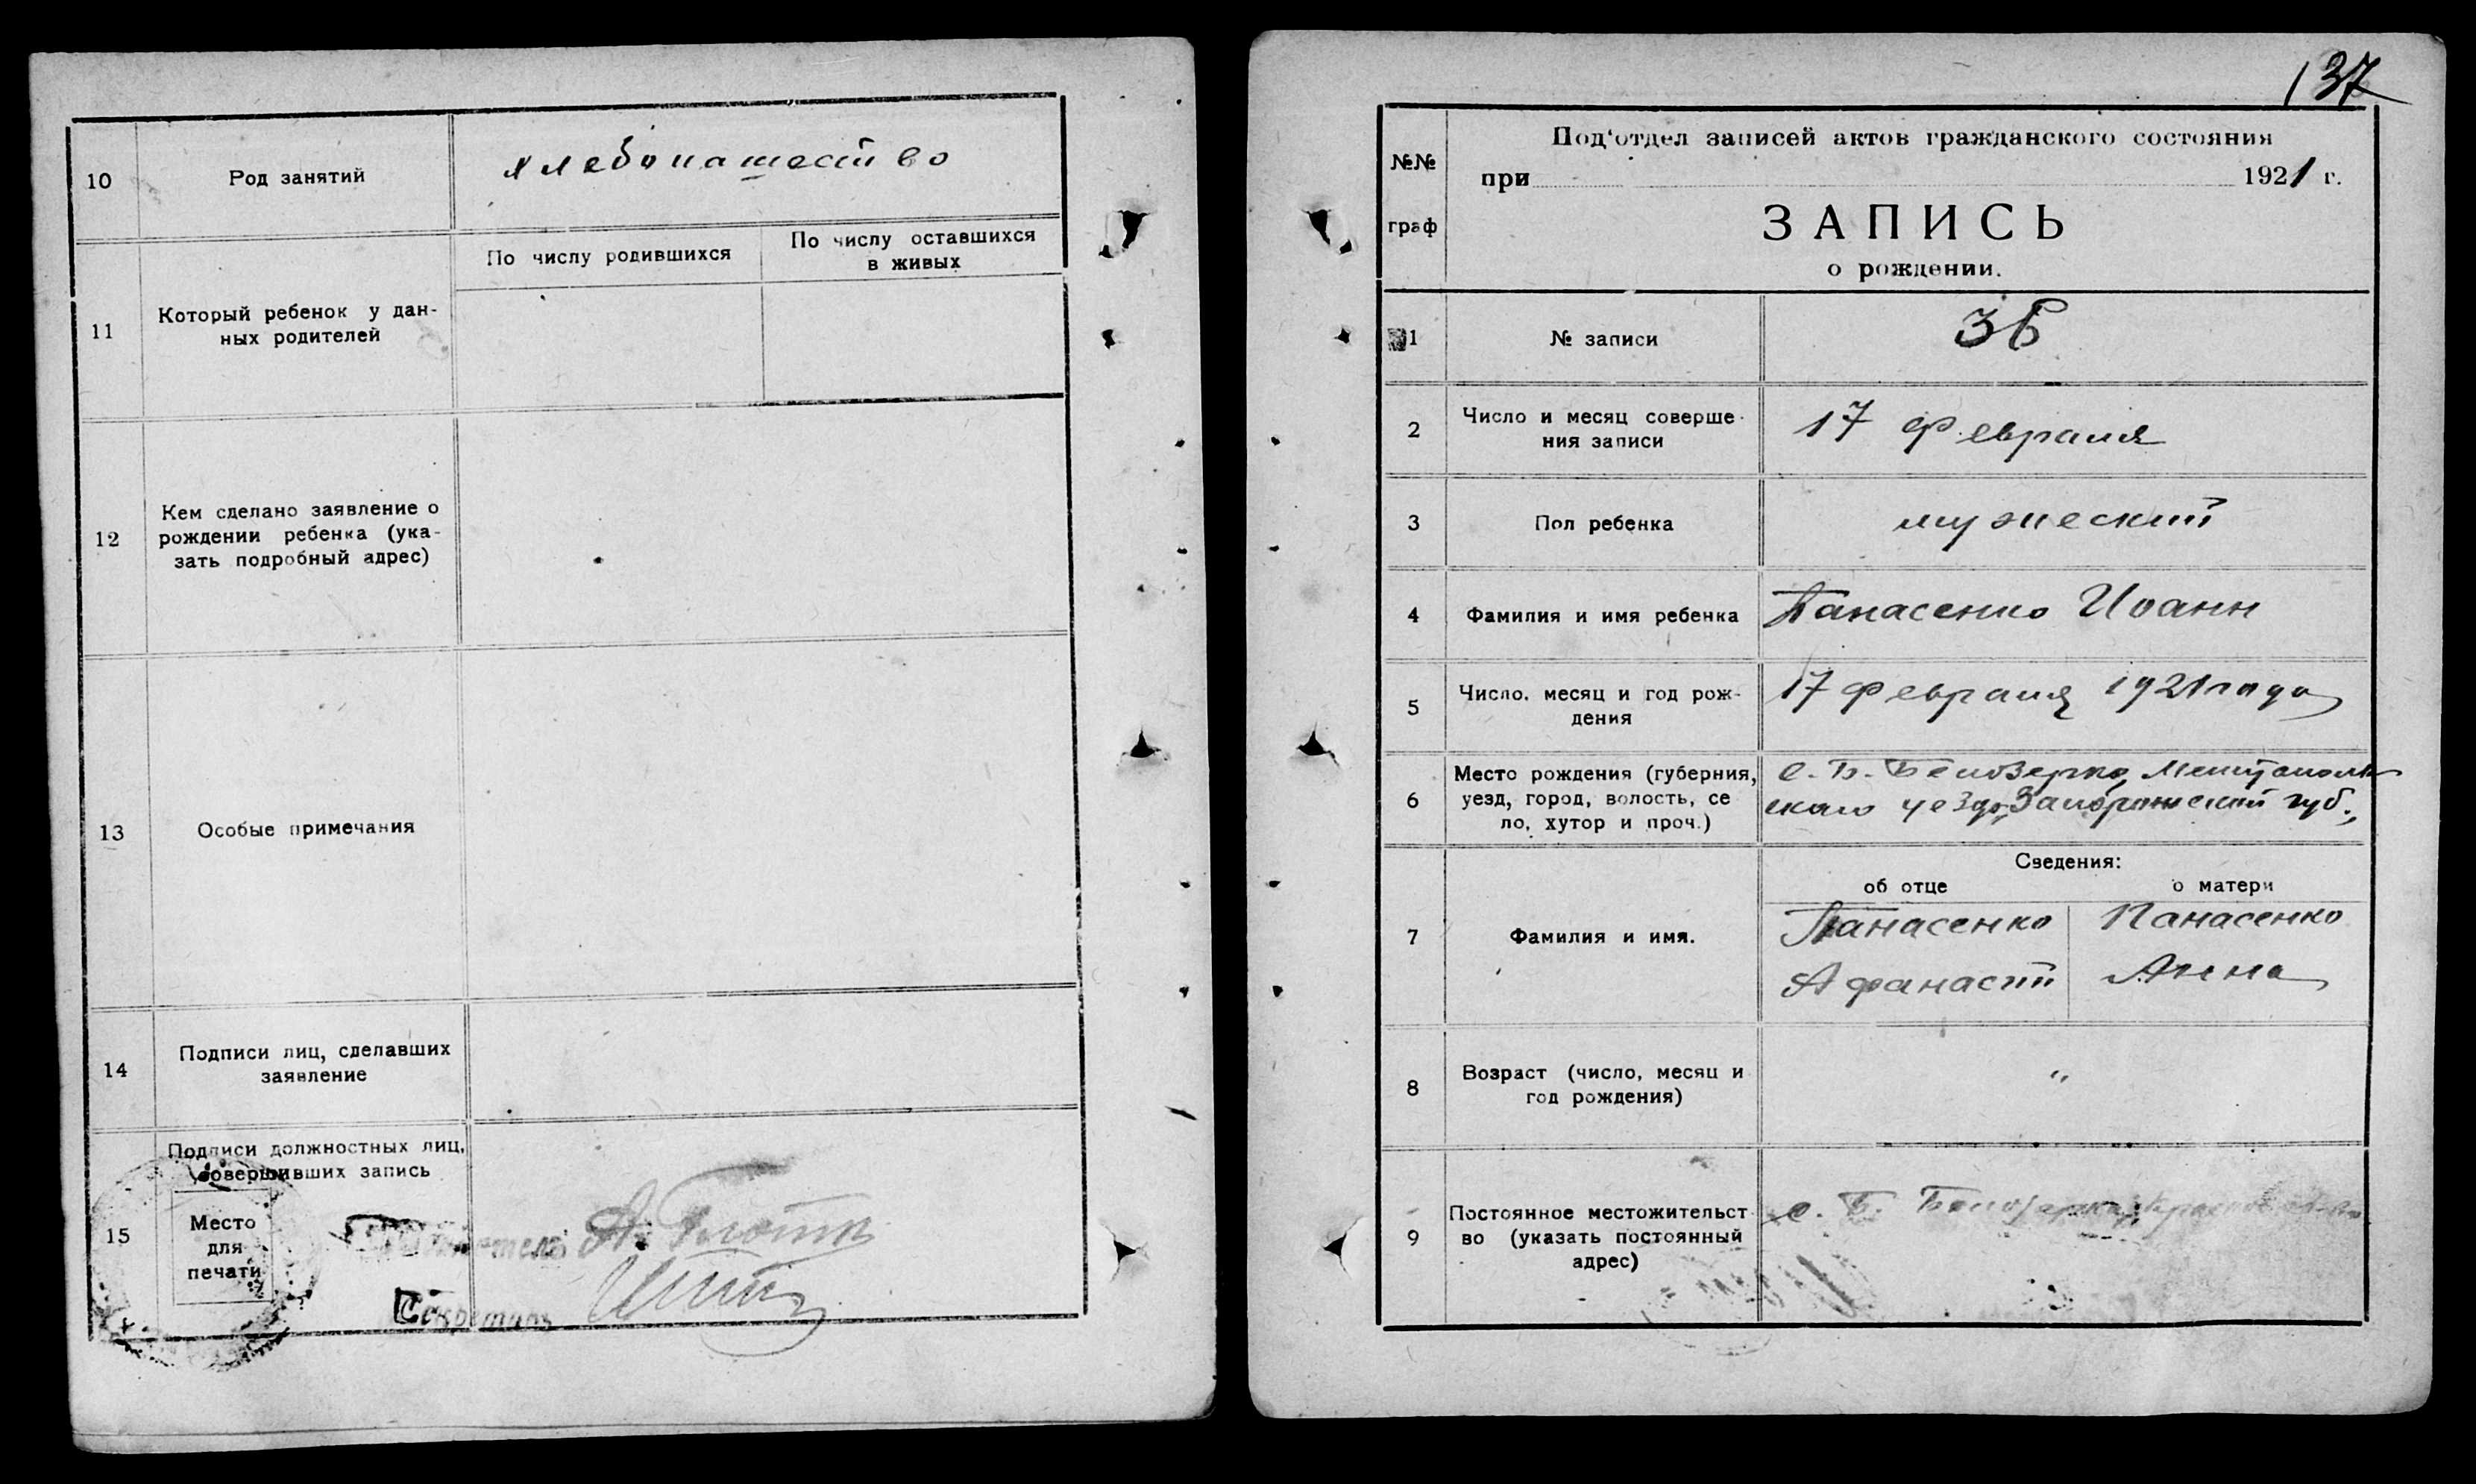 10
Род занятий
хлебопашество
11
Который ребенок у дан-
ных родителей
По числу родившихся
По числу оставшихся
в живых
12
Кем сделано заявление о
рождении ребенка (ука-
зать подробный адрес)
13
Особые примечания
14
Подписи лиц, сделавших
заявление
15
Подписи должностных лиц,
совершивших запись
Место
для
печати
Секретарь
137
№№
граф
Под‘отдел записей актов гражданского состояния
при 1921 г.
ЗАПИСЬ
о рождении.
1
№ записи
36
2
Число и месяц соверше-
ния записи
17 февраля
3
Пол ребенка
мужеский
4
Фамилия и имя ребенка
Панасенко Иоанн
5
Число, месяц и год рож-
дения
17 февраля 1921 года
6
Место рождения (губерния,
уезд, город, волость, се
ло, хутор и проч.)
с. Б. Белозерка, Мелитополь
ского уезда, Запорожской губ.,
Сведения:
об отце
о матери
7
Фамилия и имя.
Панасенко
Афанасий
Панасенко
Анна
8
Возраст (число, месяц и
год рождения)
"
9
Постоянное местожительст
во (указать постоянный
адрес)
с. Б. Белозерка,